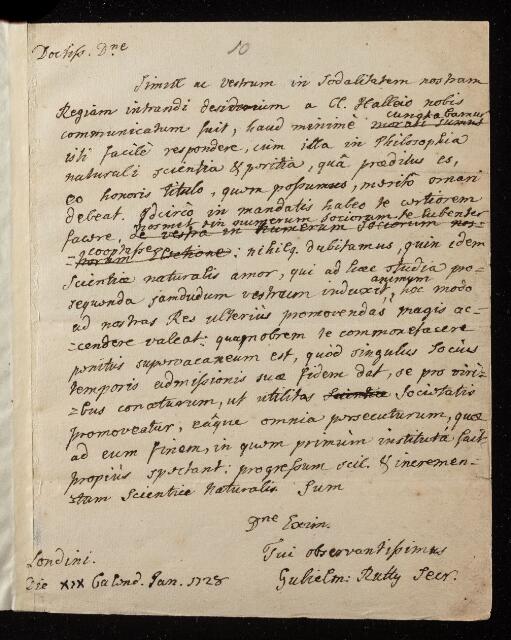 Doctiss. Dne
10
Simul ac vestrum in Sodalitatem nostram
Regiam intrandi desiderium a Cl. Halleio nobis
cunctabamur
communicatum fuit, haud minimè morati sumus
isti facilè respondere, cùm illa in Philosophia
naturali scientia & peritia, quâ præditus es,
eo honoris titulo, quem possumus, meritò ornari
debeat. Idcirco in mandatis habeo te certiorem
nosmet in numerum Sociorum te lubenter
facere, de vestra in numerum Sociorum nos-
cooptasse
-trorum Electione: nihilq. dubitamus, quin idem
Scientiæ naturalis amor, qui ad hæc studia pro-
animum
sequenda jamdudum vestrum induxit, hoc modo
ad nostras Res ulteriùs promovendas magis ac-
-cendere valeat: quamobrem te commonefacere
penitus supervacaneum est, quòd singulus Socius
temporis admissionis suæ fidem dat, se pro viri-
-bus conaturum, ut utilitas Scientiæ Societatis
promoveatur, eâque omnia persecuturum, quæ
ad eum finem, in quem primùm instituta fuit
propiùs spectant: progressum scil. & incremen-
-tum Scientiæ Naturalis. Sum
Dne Exim.
Tui observantissimus
Londini.
Die XIX Calend. Jan. 1728
Gulielm: Rutty Secr.